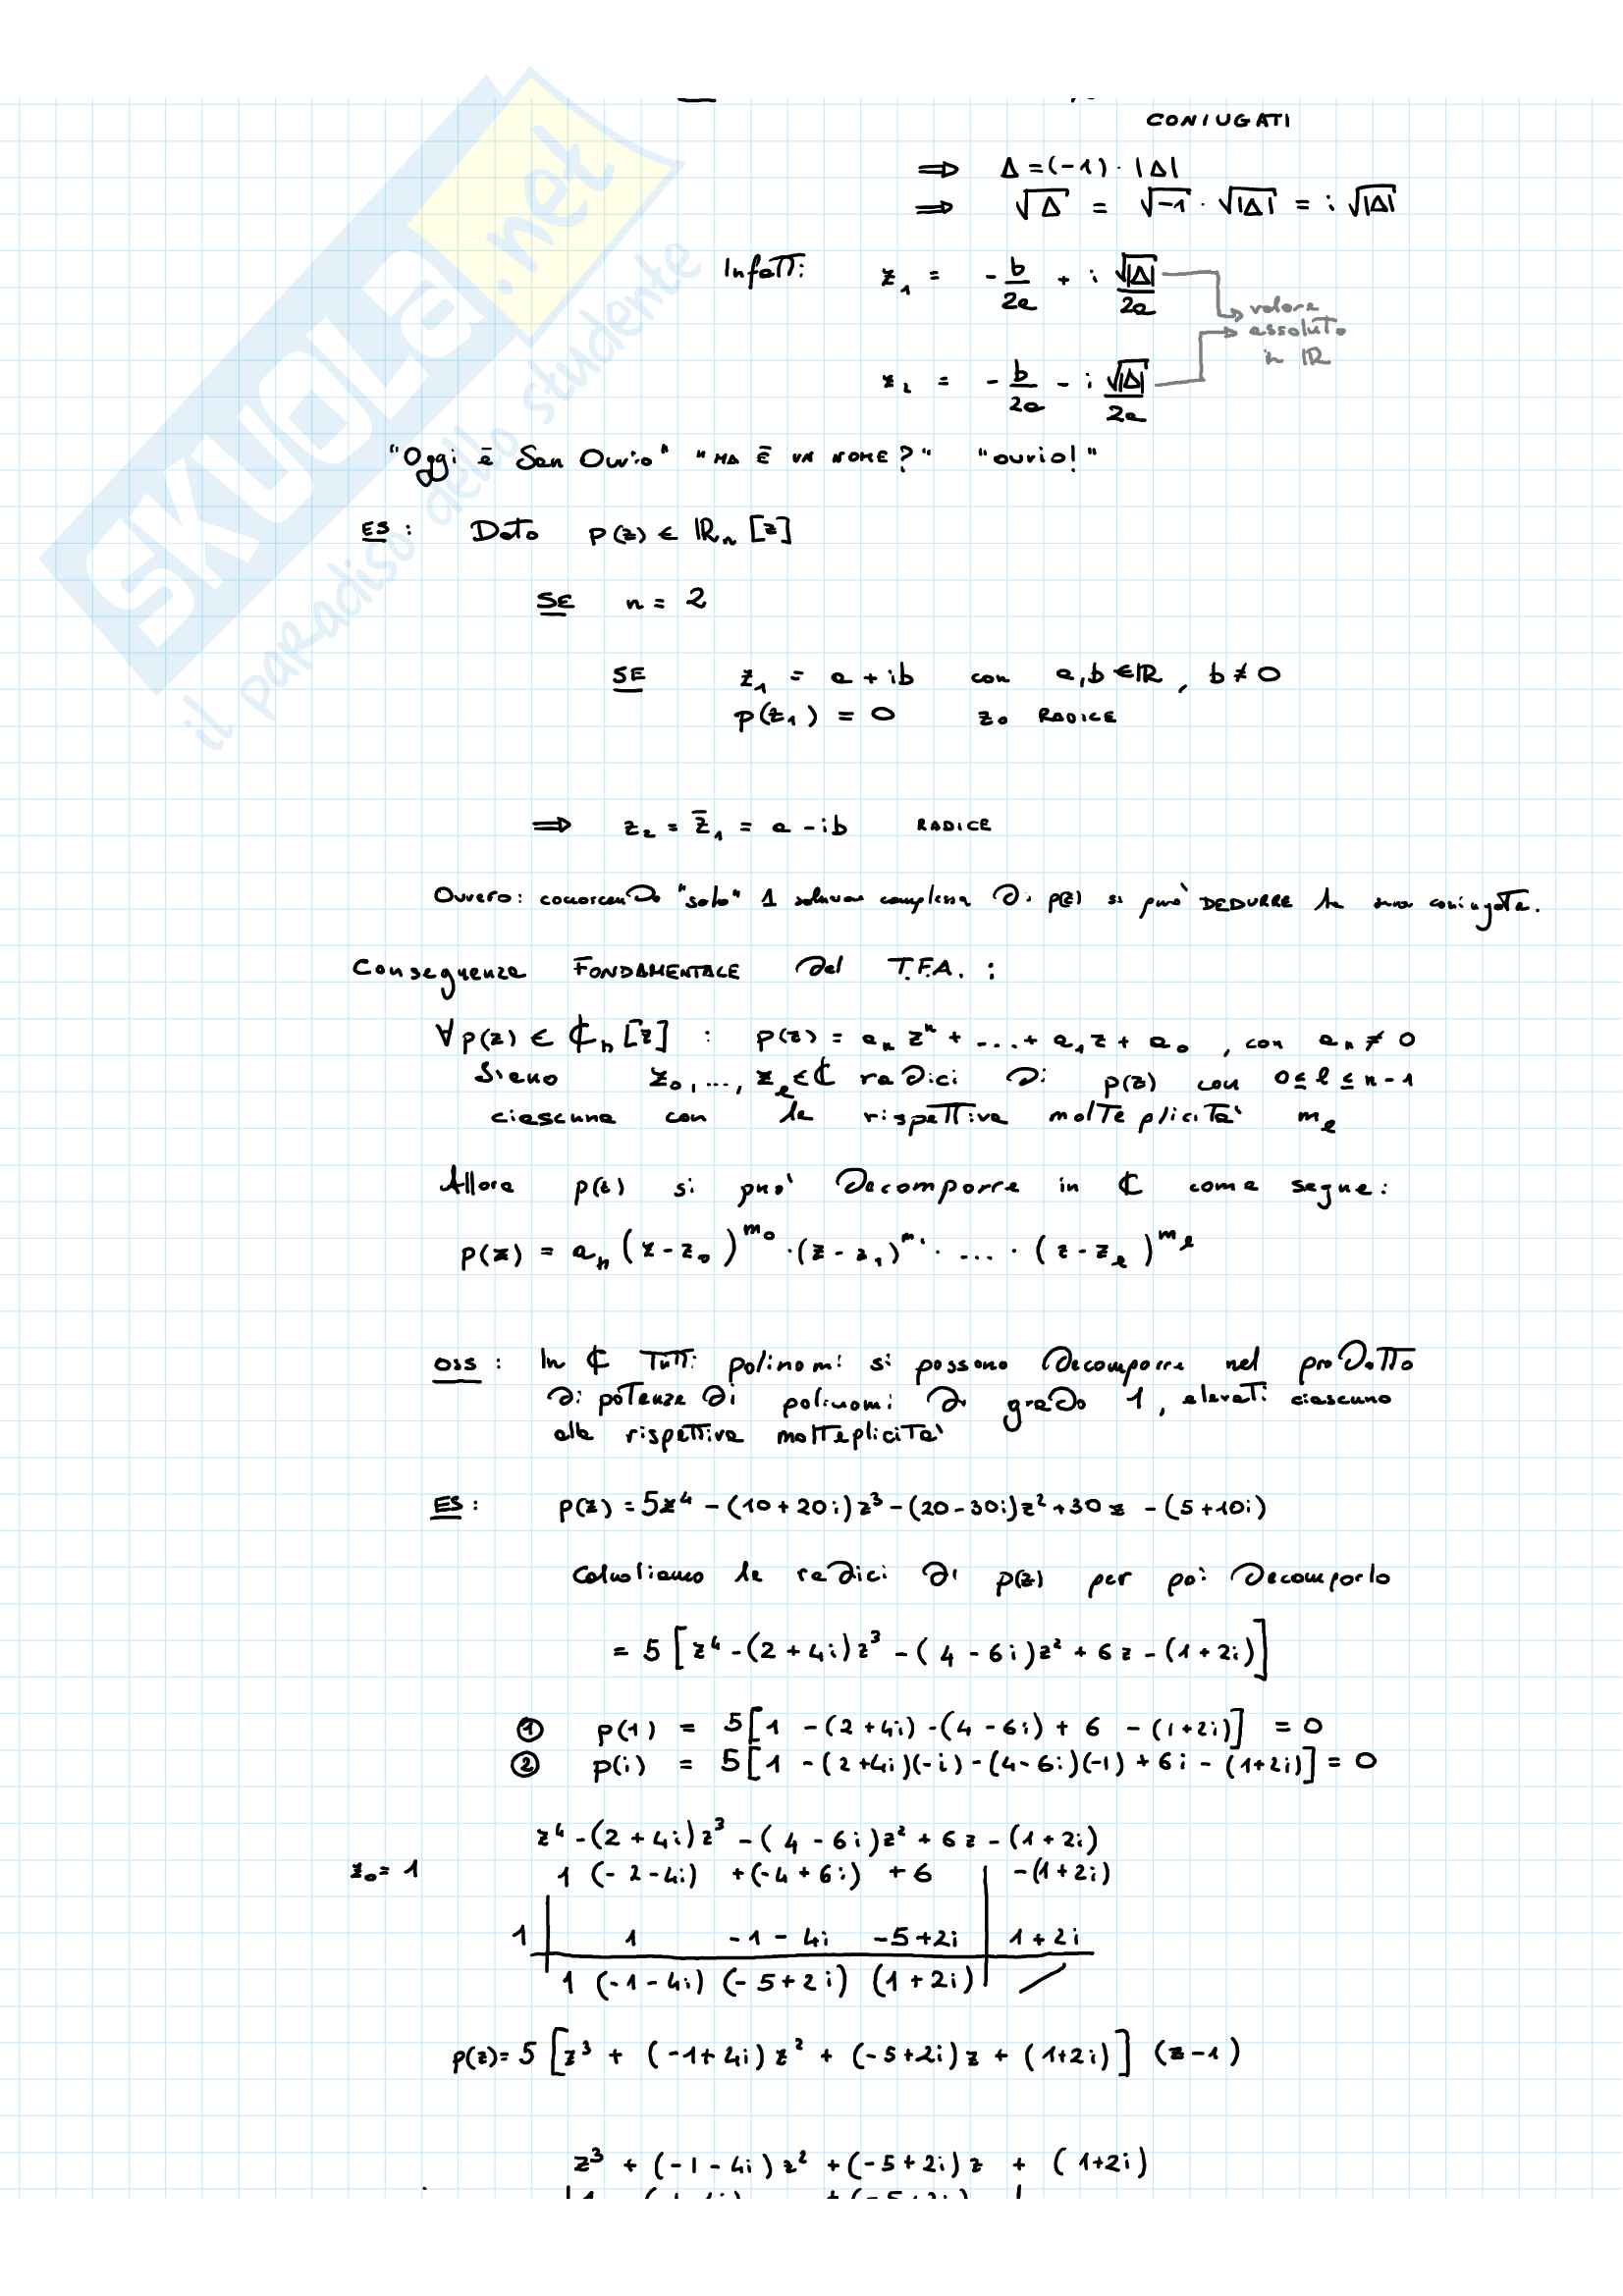 CONIUGATI
⇒ Δ = (-1) · |Δ|
⇒ √Δ = √-1 · √|Δ| = i √|Δ|
Infatti: z₁ = - b/2a + i √|Δ|/2a
valore
assoluto
in ℝ
z₂ = - b/2a - i √|Δ|/2a
"Oggi è San Ouvio" "MA È UN NOME?" "ouvio!"
ES: Dato p(z) ∈ ℝₙ [z]
SE n = 2
SE z₁ = a + ib con a,b ∈ ℝ, b ≠ 0
p(z₁) = 0 z₀ RADICE
⇒ z₂ = z̄₁ = a - ib RADICE
Ovvero: conoscendo "solo" 1 soluzione complessa di p(z) si può DEDURRE la sua coniugata.
Conseguenza FONDAMENTALE del T.F.A. :
∀ p(z) ∈ ℂₙ [z] : p(z) = aₙ zⁿ + ... + a₁z + a₀ , con aₙ ≠ 0
Siano z₀, ..., z_ℓ ∈ ℂ radici di p(z) con 0 ≤ ℓ ≤ n-1
ciascuna con la rispettiva molteplicità m_ℓ
Allora p(z) si può decomporre in ℂ come segue:
p(z) = aₙ (z - z₀)^m₀ · (z - z₁)^m₁ · ... · (z - z_ℓ)^m_ℓ
OSS : In ℂ Tutti polinomi si possono decomporre nel prodotto
di potenze di polinomi di grado 1, elevati ciascuno
alla rispettiva molteplicità
ES: p(z) = 5z⁴ - (10+20i)z³ - (20-30i)z² + 30z - (5+10i)
Calcoliamo le radici di p(z) per poi decomporlo
= 5 [z⁴ - (2+4i)z³ - (4-6i)z² + 6z - (1+2i)]
① p(1) = 5[1 - (2+4i) - (4-6i) + 6 - (1+2i)] = 0
② p(i) = 5[1 - (2+4i)(-i) - (4-6i)(-1) + 6i - (1+2i)] = 0
z⁴ - (2+4i)z³ - (4-6i)z² + 6z - (1+2i)
z₀ = 1 1 (-2-4i) +(-4+6i) +6 | -(1+2i)
1 | 1 -1-4i -5+2i | 1+2i
1 (-1-4i) (-5+2i) (1+2i) | /
p(z) = 5 [z³ + (-1+4i)z² + (-5+2i)z + (1+2i)] (z-1)
z³ + (-1-4i)z² + (-5+2i)z + (1+2i)
SKUOLA.net
il paradiso dello studente